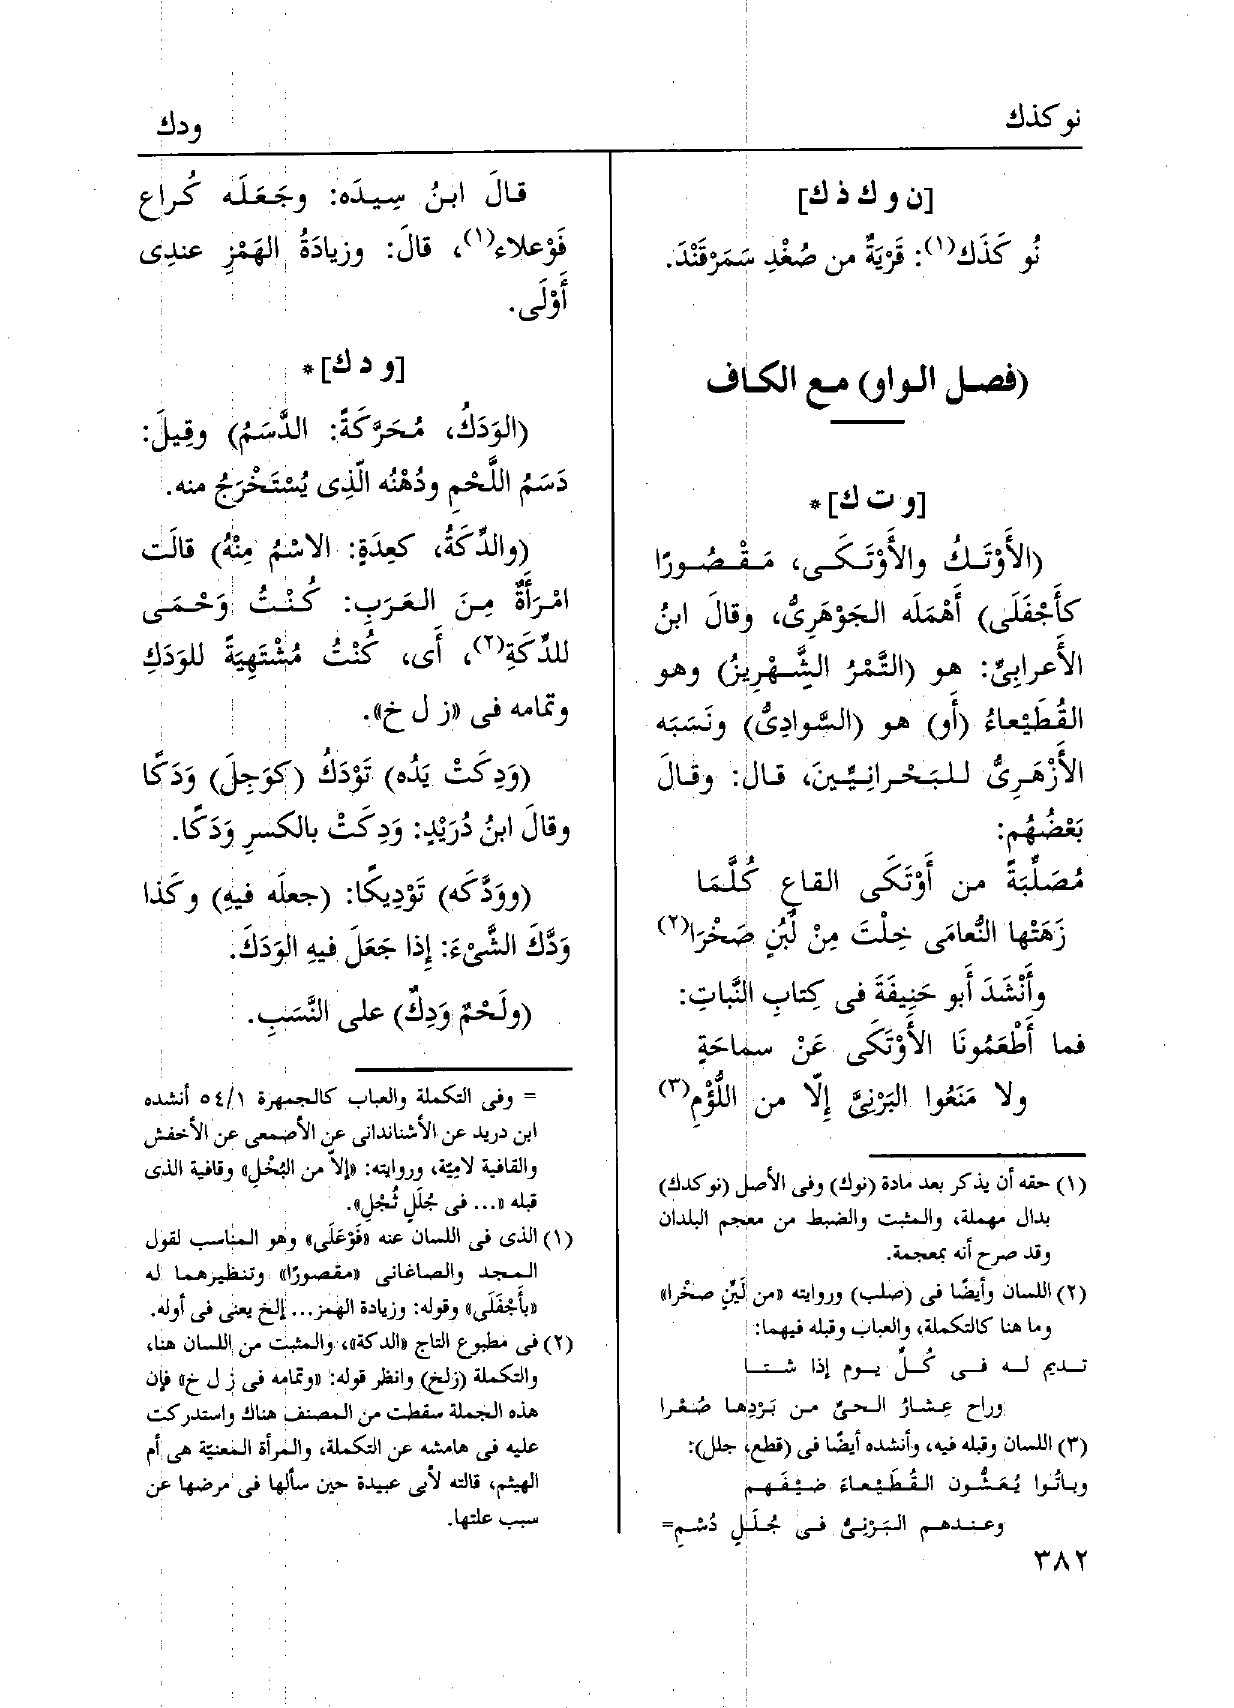 نوكذك
ودك
[ن و ك ذ ك]
نُو كَذَك(١): قَرْيَةٌ من صُغْدِ سَمَرْقَنْدَ.
(فصل الواو) مع الكاف
[و ت ك] *
(الأَوْتَكُ والأَوْتَكَى، مَقْصُورًا
كأَجْفَلَى) أَهْمَله الجَوْهَرِىُّ، وقالَ ابنُ
الأَعرابِىّ: هو (التَّمْرُ الشِّهْرِيزُ) وهو
القُطَيْعاءُ (أو) هو (السَّوادِىُّ) ونَسَبَه
الأَزْهَرِىُّ للبَحْرانِيِّينَ، قال: وقالَ
بَعْضُهُم:
مُصَلِّبَةً من أَوْتَكَى القاعِ كُلَّمَا
زَهَتْها النُّعامَى خِلْتَ مِنْ لَبَنٍ صَخْرَا(٢)
وأَنْشَدَ أبو حَنِيفَةَ فى كِتابِ النَّباتِ:
فما أَطْعَمُونَا الأَوْتَكَى عَنْ سماحَةٍ
ولا مَنَعُوا البَرْنِىَّ إِلّا من اللُّؤْمِ(٣)
(١) حقه أن يذكر بعد مادة (نوك) وفى الأصل (نوكدك)
بدال مهملة، والمثبت والضبط من معجم البلدان
وقد صرح أنه بمعجمة.
(٢) اللسان وأيضًا فى (صلب) وروايته «من لَيِّنٍ صخْرا»
وما هنا كالتكملة، والعباب وقبله فيهما:
تديم له فى كُلِّ يوم إذا شتا
وراح عِشارُ الحىِّ من بَرْدِها صُعْرا
(٣) اللسان وقبله فيه، وأنشده أيضًا فى (قطع، جلل):
وباتُوا يُعَشُّون القُطَيْعاءَ ضيْفَهم
وعندهم البَرْنِىُّ فى جُلَلٍ دُسْمِ=
٣٨٢
قالَ ابنُ سِيدَه: وجَعَلَه كُراع
فَوْعَلاء(١)، قالَ: وزيادَةُ الهَمْزِ عندِى
أَوْلَى.
[و د ك] *
(الوَدَكُ، مُحَرَّكَةً: الدَّسَمُ) وقِيلَ:
دَسَمُ اللَّحْمِ ودُهْنُه الَّذِى يُسْتَخْرَجُ منه.
(والدِّكَةُ، كعِدَةٍ: الاسْمُ مِنْهُ) قالَت
امْرَأَةٌ مِنَ العَرَبِ: كُنْتُ وَحْمَى
للدِّكَةِ(٢)، أَى، كُنْتُ مُشْتَهِيَةً للوَدَكِ
وتمامه فى «ز ل خ».
(وَدِكَتْ يَدُه) تَوْدَكُ (كوَجِلَ) وَدَكًا
وقالَ ابنُ دُرَيْدٍ: وَدِكَتْ بالكسرِ وَدَكًا.
(ووَدَّكَه) تَوْدِيكًا: (جعلَه فيهِ) وكَذا
وَدَّكَ الشَّىْءَ: إِذا جَعَلَ فيهِ الوَدَكَ.
(ولَحْمٌ وَدِكٌ) على النَّسَبِ.
= وفى التكملة والعباب كالجمهرة ٥٤/١ أنشده
ابن دريد عن الأشناندانى عن الأصمعى عن الأخفش
والقافية لاميّة، وروايته: «إلاّ من البُخْلِ» وقافية الذى
قبله «... فى جُلَلٍ ثُجْلِ».
(١) الذى فى اللسان عنه «فَوْعَلَى» وهو المناسب لقول
المجد والصاغانى «مقصورًا» وتنظيرهما له
«بأَجْفَلَى» وقوله: وزيادة الهمز... إلخ يعنى فى أوله.
(٢) فى مطبوع التاج «الدكة»، والمثبت من اللسان هنا،
والتكملة (زلخ) وانظر قوله: «وتمامه فى ز ل خ» فإن
هذه الجملة سقطت من المصنف هناك واستدركت
عليه فى هامشه عن التكملة، والمرأة المعنيّة هى أم
الهيثم، قالته لأبى عبيدة حين سألها فى مرضها عن
سبب علتها.